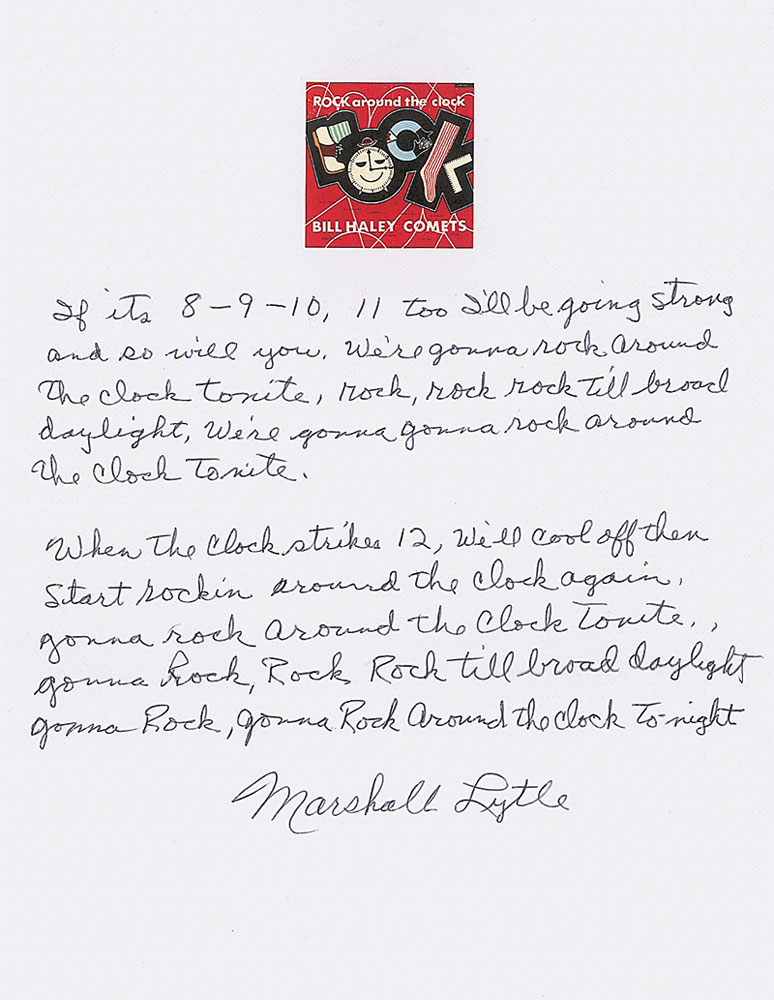 ROCK around the clock
ROCK
BILL HALEY COMETS
If its 8-9-10, 11 too I'll be going strong
and so will you. We're gonna rock around
the clock tonite, rock, rock rock till broad
daylight, We're gonna gonna rock around
the clock tonite.
When the clock strikes 12, We'll cool off then
Start rockin around the clock again.
gonna rock around the clock tonite. ,
gonna Rock, Rock Rock till broad daylight
gonna Rock, gonna Rock Around the clock to-night
Marshall Lytle